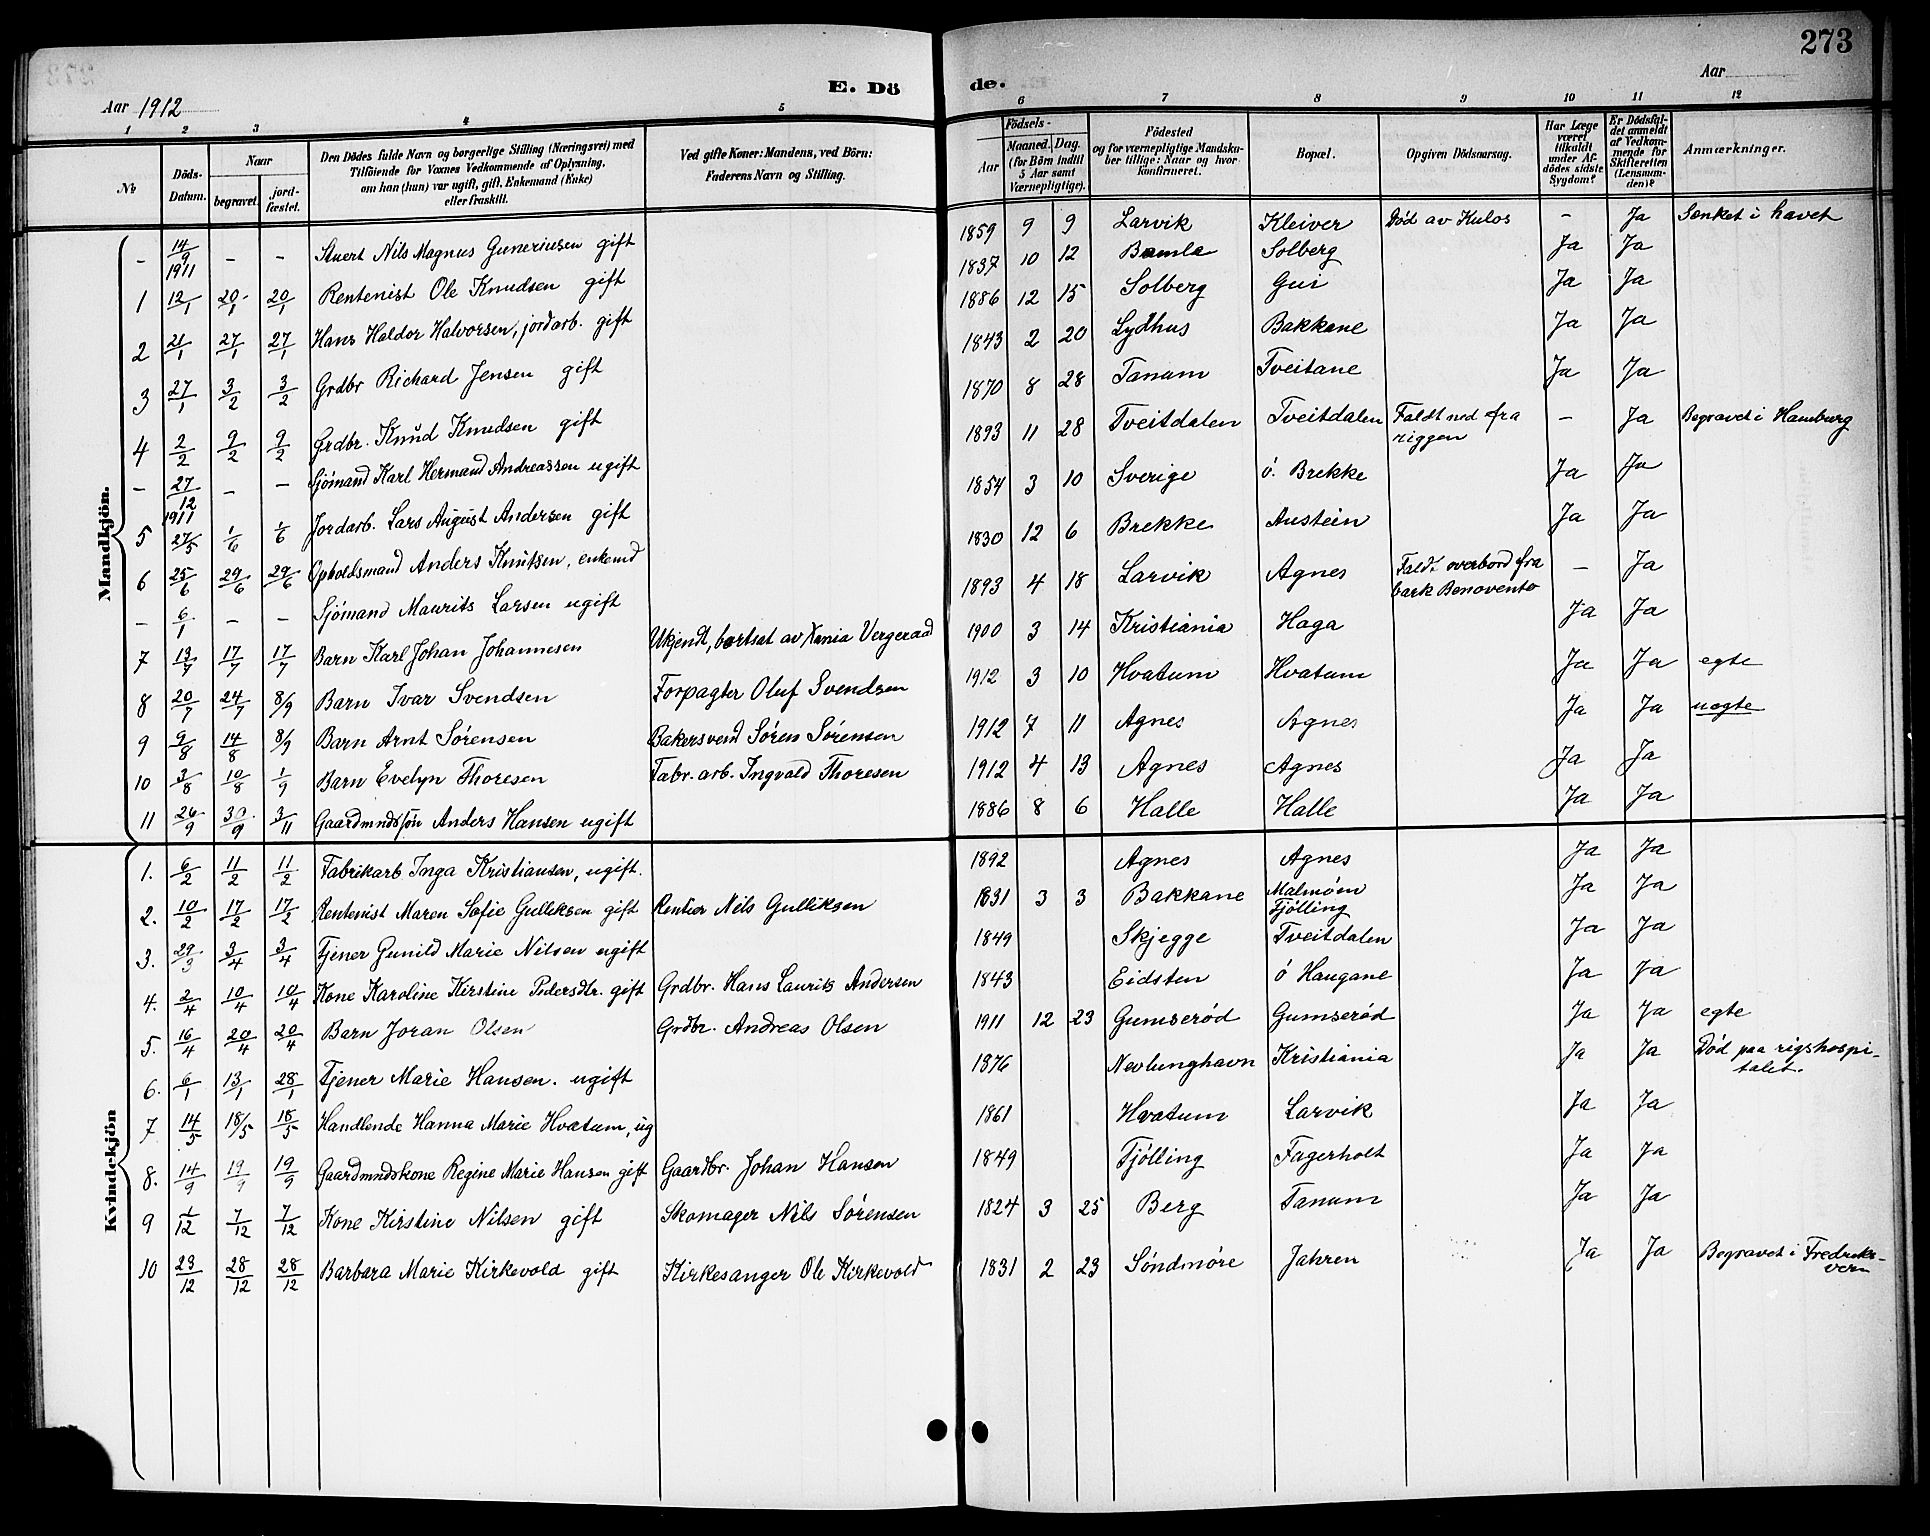 273
E. Dö de.
Aar 1912
Aar
1 2 3 4 5 6 7 8 9 10 11 12
No
Döds-Datum.
Naar
begravet.
jord-fæstet.
Den Dödes fulde Navn og borgerlige Stilling (Næringsvei) med
Tilföiende for Voxnes Vedkommende af Oplysning,
om han (hun) var ugift, gift, Enkemand (Enke)
eller fraskilt.
Ved gifte Koner: Mandens, ved Börn:
Faderens Navn og Stilling.
Födsels-
Aar
Maaned. Dag.
(for Börn indtil
5 Aar samt
Værnepligtige).
Födested
og for værnepligtige Mandska-
ber tillige: Naar og hvor
konfirmeret.
Bopæl.
Opgiven Dödsaarsag.
Har Læge
været
tilkaldt
under Af-
dödes sidste
Sygdom?
Er Dödsfal-
det anmeldt
af Vedkom-
mende for
Skifteretten
(Lensman-
den)?
Anmærkninger.
Mandkjön.
- 14/9 1911 - - Stuert Nils Magnus Guneriusen gift 1859 9 9 Larvik Kleiver Död av Kulos - Ja Senket i havet
1 12/1 20/1 20/1 Rentenist Ole Knudsen gift 1837 10 12 Bamle Solberg Ja Ja
2 21/1 27/1 27/1 Hans Haldor Halvorsen, jordarb. gift 1886 12 15 Solberg Gui Ja Ja
3 27/1 3/2 3/2 Grdbr Richard Jensen gift 1843 2 20 Lydhus Bakkane Ja Ja
4 2/2 9/2 9/2 Grdbr. Knud Knudsen gift 1870 8 28 Tanum Tveitane Ja Ja
- 27/12 1911 - - Sjömand Karl Hermand Andreassen ugift 1893 11 28 Tveitdalen Tveitdalen Faldt ned fra riggen - Ja Begravet i Hamburg
5 27/5 1/6 1/6 Jordarb. Lars August Andersen gift 1854 3 10 Sverige ö. Brekke Ja Ja
6 25/6 29/6 29/6 Opholdsmand Anders Knutsen, enkemd 1830 12 6 Brekke Austein Ja Ja
- 6/1 - - Sjömand Maurits Larsen ugift 1893 4 18 Larvik Agnes Faldt overbord fra bark Benovento - Ja
7 13/7 17/7 17/7 Barn Karl Johan Johannesen Ukjendt, bortsat av Xania Vergeraad 1900 3 14 Kristiania Haga Ja Ja
8 20/7 24/7 8/9 Barn Ivar Svendsen Forpagter Oluf Svendsen 1912 3 10 Hvatum Hvatum Ja Ja egte
9 9/8 14/8 8/9 Barn Arnt Sörensen Bakersvend Sören Sörensen 1912 7 11 Agnes Agnes Ja Ja uegte
10 3/8 10/8 1/9 Barn Evelyn Thoresen Fabr. arb. Ingvald Thoresen 1912 4 13 Agnes Agnes Ja Ja
11 26/9 30/9 3/11 Gaardmndssön Anders Hansen ugift 1886 8 6 Halle Halle Ja Ja
Kvindekjön
1. 6/2 11/2 11/2 Fabrikarb. Inga Kristiansen, ugift. 1892 Agnes Agnes Ja Ja
2. 10/2 17/2 17/2 Rentenist Maren Sofie Gulliksen gift Rentier Nils Gulliksen 1831 3 3 Bakkane Malmöen Tjölling Ja Ja
3. 29/3 3/4 3/4 Tjener Gunild Marie Nilsen ugift 1849 Skjegge Tveitdalen Ja Ja
4. 2/4 10/4 10/4 Kone Karoline Kirstine Pedersdtr. gift Grdbr. Hans Laurits Andersen 1843 Eidsten ö Haugane Ja Ja
5. 16/4 20/4 20/4 Barn Joran Olsen Grdbr. Andreas Olsen 1911 12 23 Gumseröd Gumseröd Ja Ja egte
6. 6/1 13/1 28/1 Tjener Marie Hansen. ugift 1876 Nevlunghavn Kristiania Ja Ja Död paa rigshospi-talet.
7 14/5 18/5 18/5 Handlende Hanna Marie Hvatum, ug 1861 Hvatum Larvik Ja Ja
8. 14/9 19/9 19/9 Gaardmndskone Regine Marie Hansen gift Gaardbr. Johan Hansen 1849 Tjölling Fagerholt Ja Ja
9 1/12 7/12 7/12 Kone Kirstine Nilsen gift Skomager Nils Sörensen 1824 3 25 Berg Tanum Ja Ja
10 23/12 28/12 28/12 Barbara Marie Kirkevold gift Kirkesanger Ole Kirkevold 1831 2 23 Söndmöre Jahren Ja Ja Begravet i Fredriks-vern